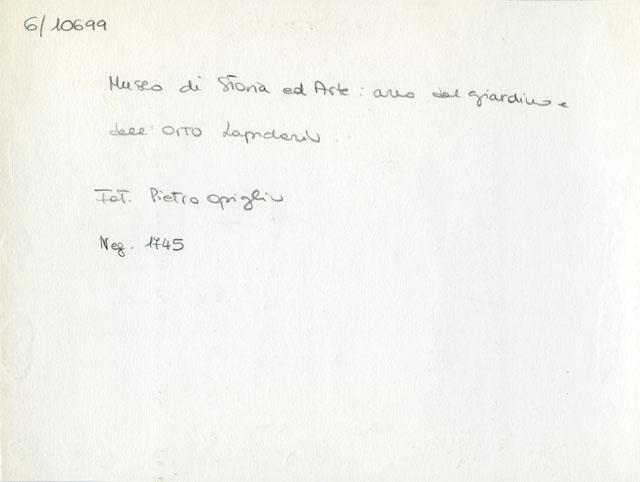 6/10699
Museo di Storia ed Arte: area del giardino e
dell'Orto Lapidario
Fot. Pietro Opiglio
Neg. 1745